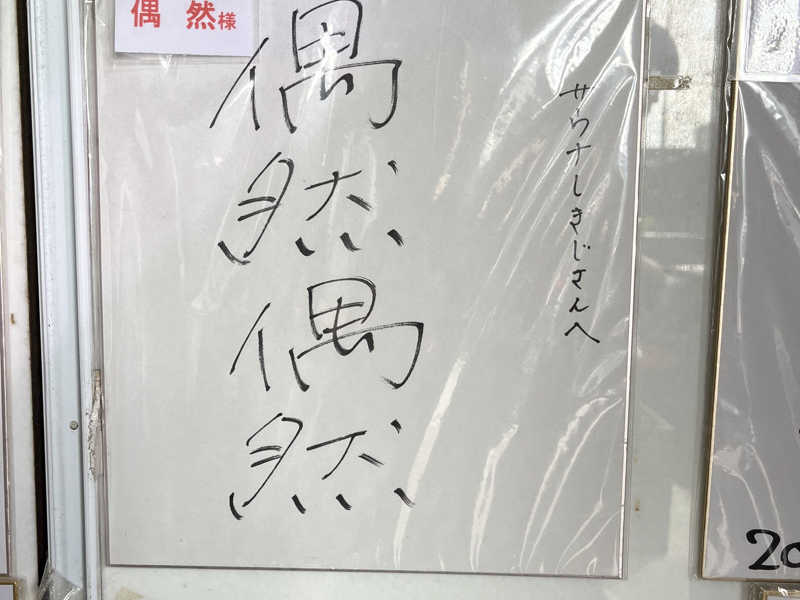 偶然様
サウナしきじさんへ
偶然
偶然
20